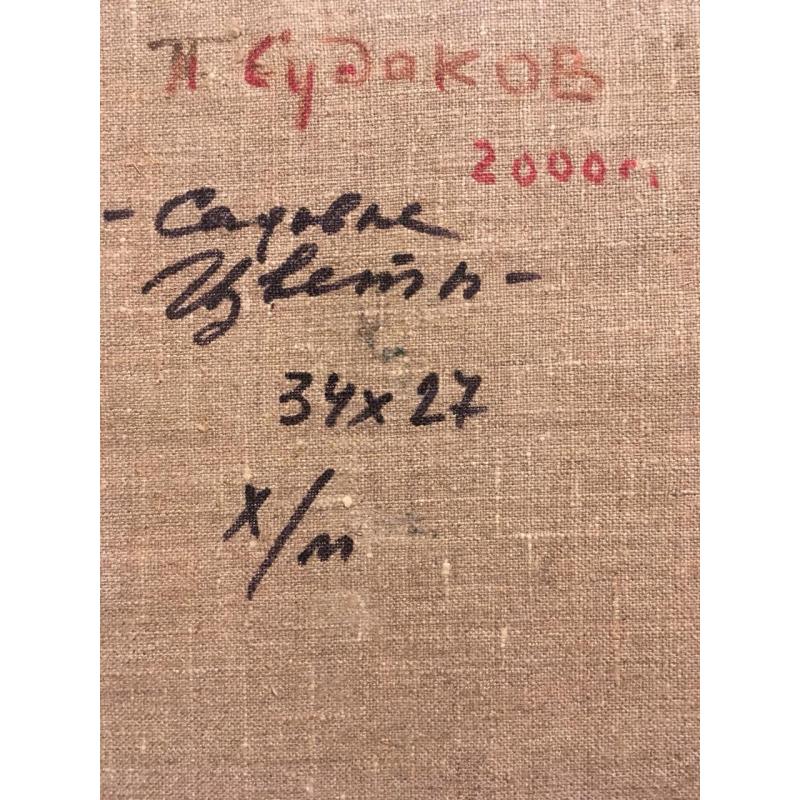 П Судаков
2000г.
- Садовые
Цветы -
34x27
х/м